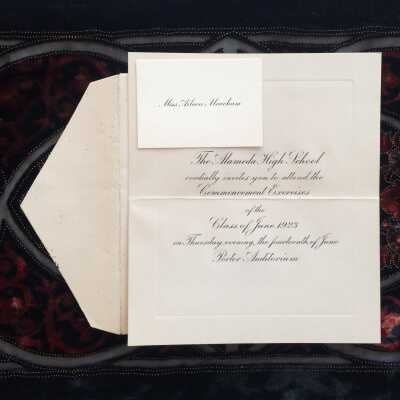 Miss Aileen Meacham
The Alameda High School
cordially invites you to attend the
Commencement Exercises
of the
Class of June 1923
on Thursday evening, the fourteenth of June
Porter Auditorium